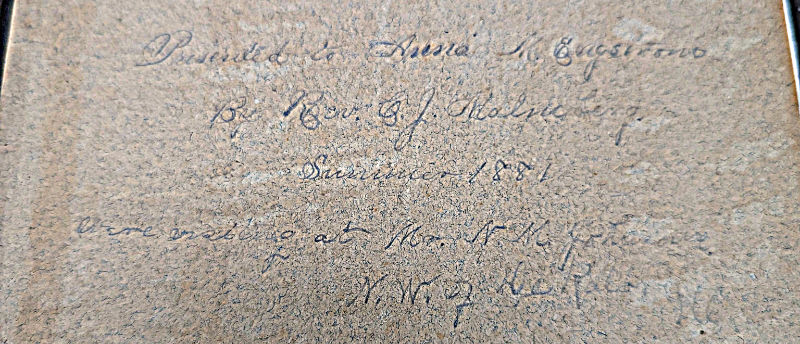 Presented to Anna M. Engstrom
By Rev. C. J. Malmberg
Summer 1881
Were visiting at Mr. N. M. Johnson
N.W. of De Kalb